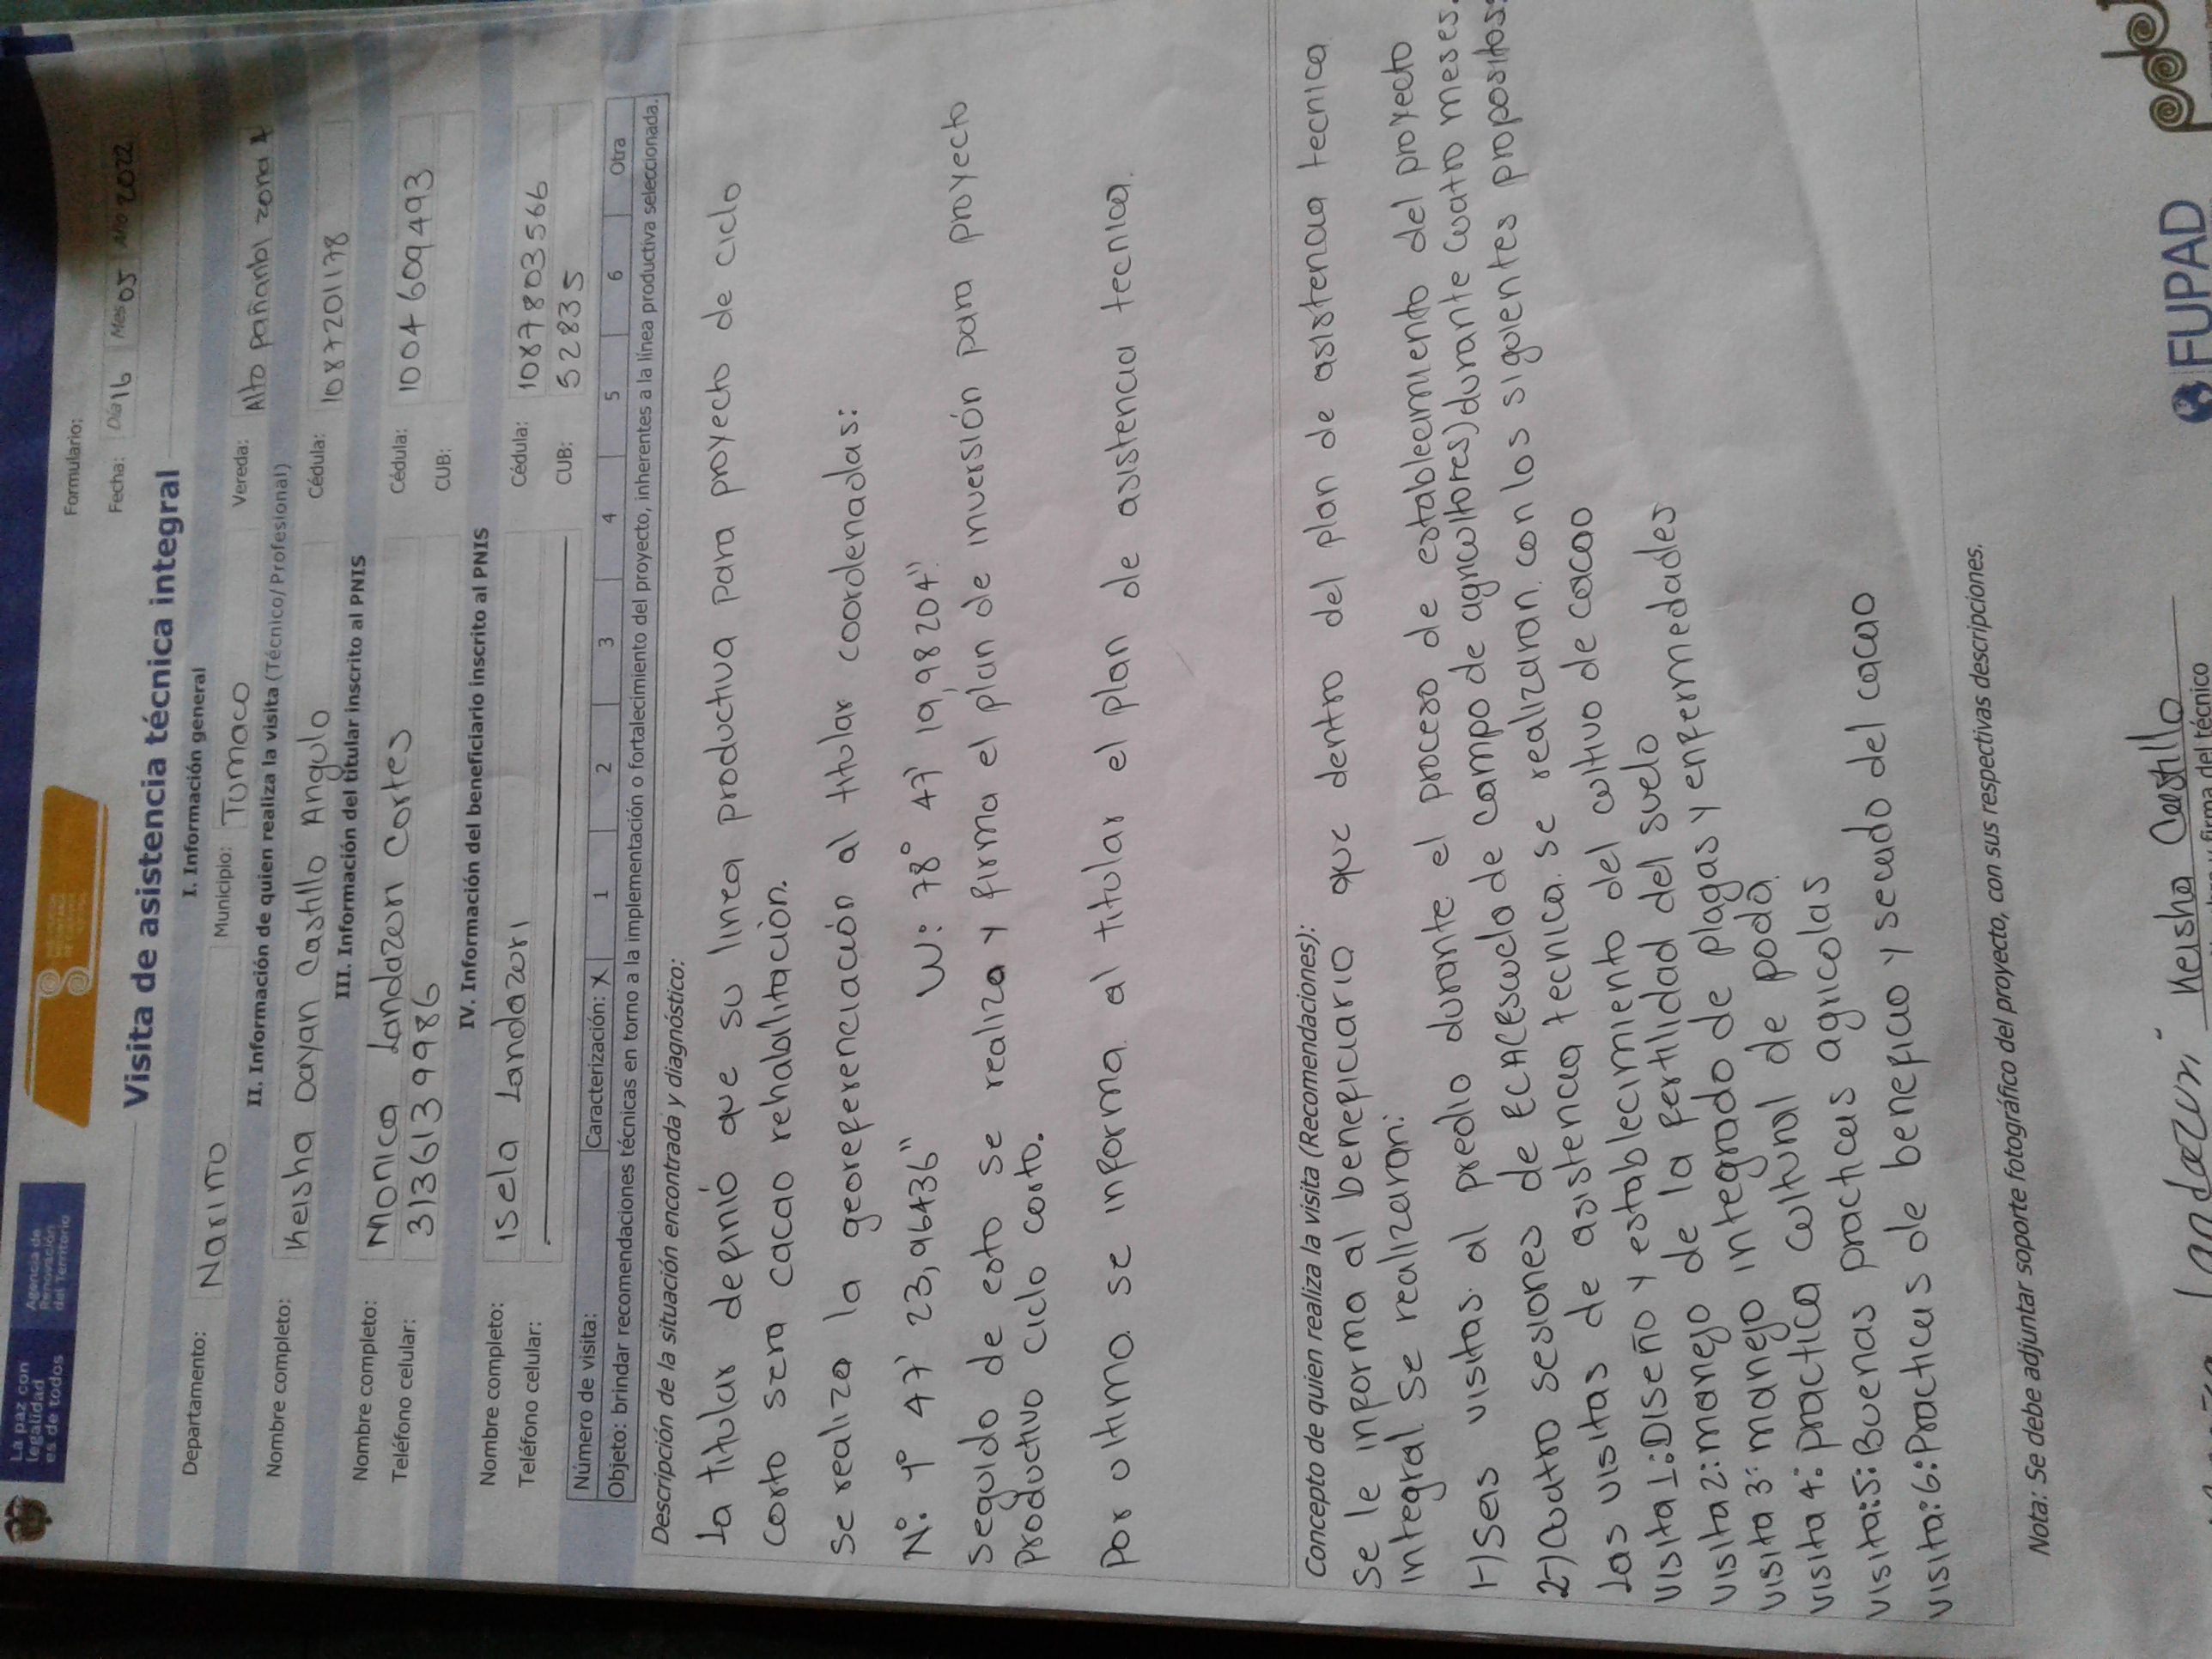 La paz con
legalidad
es de todos
Agencia de
Renovación
del Territorio
Formulario:
Fecha: Día 16 Mes 05 Año 2022
Visita de asistencia técnica integral
I. Información general
Departamento: Narino Municipio: Tumaco Vereda: Alto pañanbi zona 1
II. Información de quien realiza la visita (Técnico/Profesional)
Nombre completo: Keisha Dayan Castillo Angulo Cédula: 1087201178
III. Información del titular inscrito al PNIS
Nombre completo: Monica Landazuri Cortes Cédula: 1004609493
Teléfono celular: 3136139986 CUB:
IV. Información del beneficiario inscrito al PNIS
Nombre completo: Isela Landazuri Cédula: 1087803566
Teléfono celular: CUB: 52835
Número de visita: Caracterización: X 1 2 3 4 5 6 Otra
Objeto: brindar recomendaciones técnicas en torno a la implementación o fortalecimiento del proyecto, inherentes a la línea productiva seleccionada.
Descripción de la situación encontrada y diagnóstico:
La titular definió que su linea productiva para proyecto de ciclo
corto sera cacao rehabilitación.
se realiza la georeferenciación al titular coordenadas:
N: 1° 47' 23,96436" W: 78° 47' 19,98204"
seguido de esto se realiza y firma el plan de inversión para proyecto
productivo ciclo corto.
Por ultimo se informa al titular el plan de asistencia tecnica.
Concepto de quien realiza la visita (Recomendaciones):
Se le informa al beneficiario que dentro del plan de asistencia tecnica
integral se realizaran:
1-) Seis visitas al predio durante el proceso de establecimiento del proyecto
2-) Cuatro sesiones de ECA(Escuela de campo de agricultores) durante cuatro meses.
Las visitas de asistencia tecnica se realizaran con los siguientes propositos:
Visita 1: Diseño y establecimiento del cultivo de cacao
Visita 2: manejo de la fertilidad del suelo
Visita 3: manejo integrado de plagas y enfermedades
Visita 4: practica cultural de poda
Visita:5: Buenas practicas agricolas
Visita:6: Practicas de beneficio y secado del cacao
Nota: Se debe adjuntar soporte fotográfico del proyecto, con sus respectivas descripciones.
Landazuri Keisha Castillo
firma del técnico
FUPAD